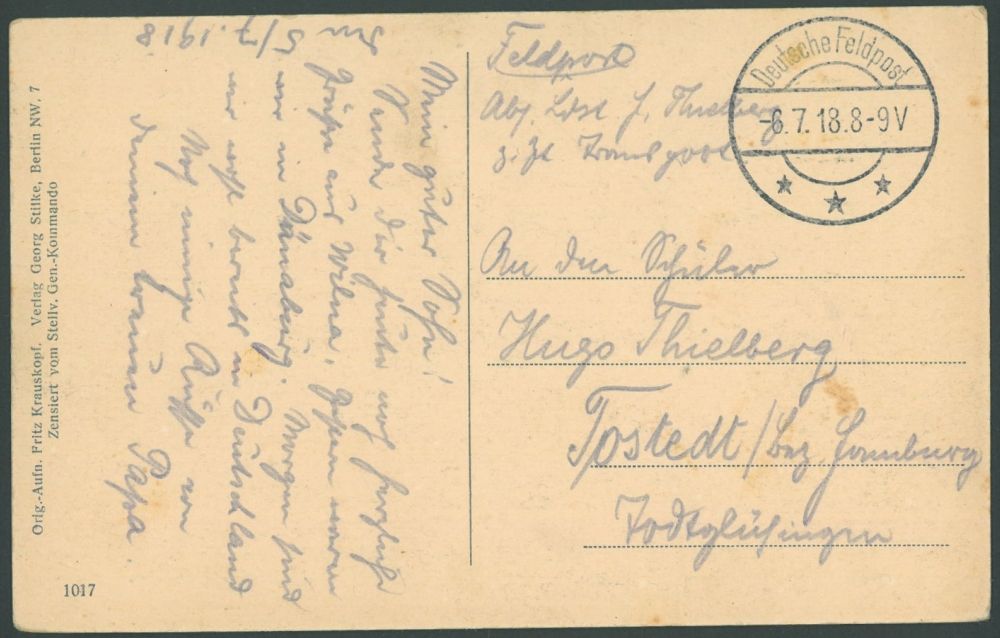 Den
5/7.1918
Mein guter Sohn!
Sende Dir heute noch herzliche
Grüße aus Wilna, gestern waren
wir in Dünaburg. Morgen sind
wir wohl bereits in Deutschland
Noch innige Grüße von
deinem treuen Papa.
Feldpost
Abs. Ldst. J. Thielberg
z. Zt. Transport
Deutsche Feldpost
-6.7.18.8-9V
An den Schüler
Hugo Thielberg
Tostedt/Bez Hamburg
Todtglüsingen
Orig.-Aufn. Fritz Krauskopf. Verlag Georg Stilke, Berlin NW. 7
Zensiert vom Stellv. Gen.-Kommando
1017